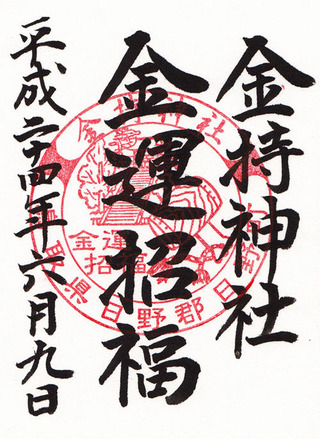 金持神社
金運招福
平成二十四年六月九日
金持神社
金運
招福
県日野郡日野